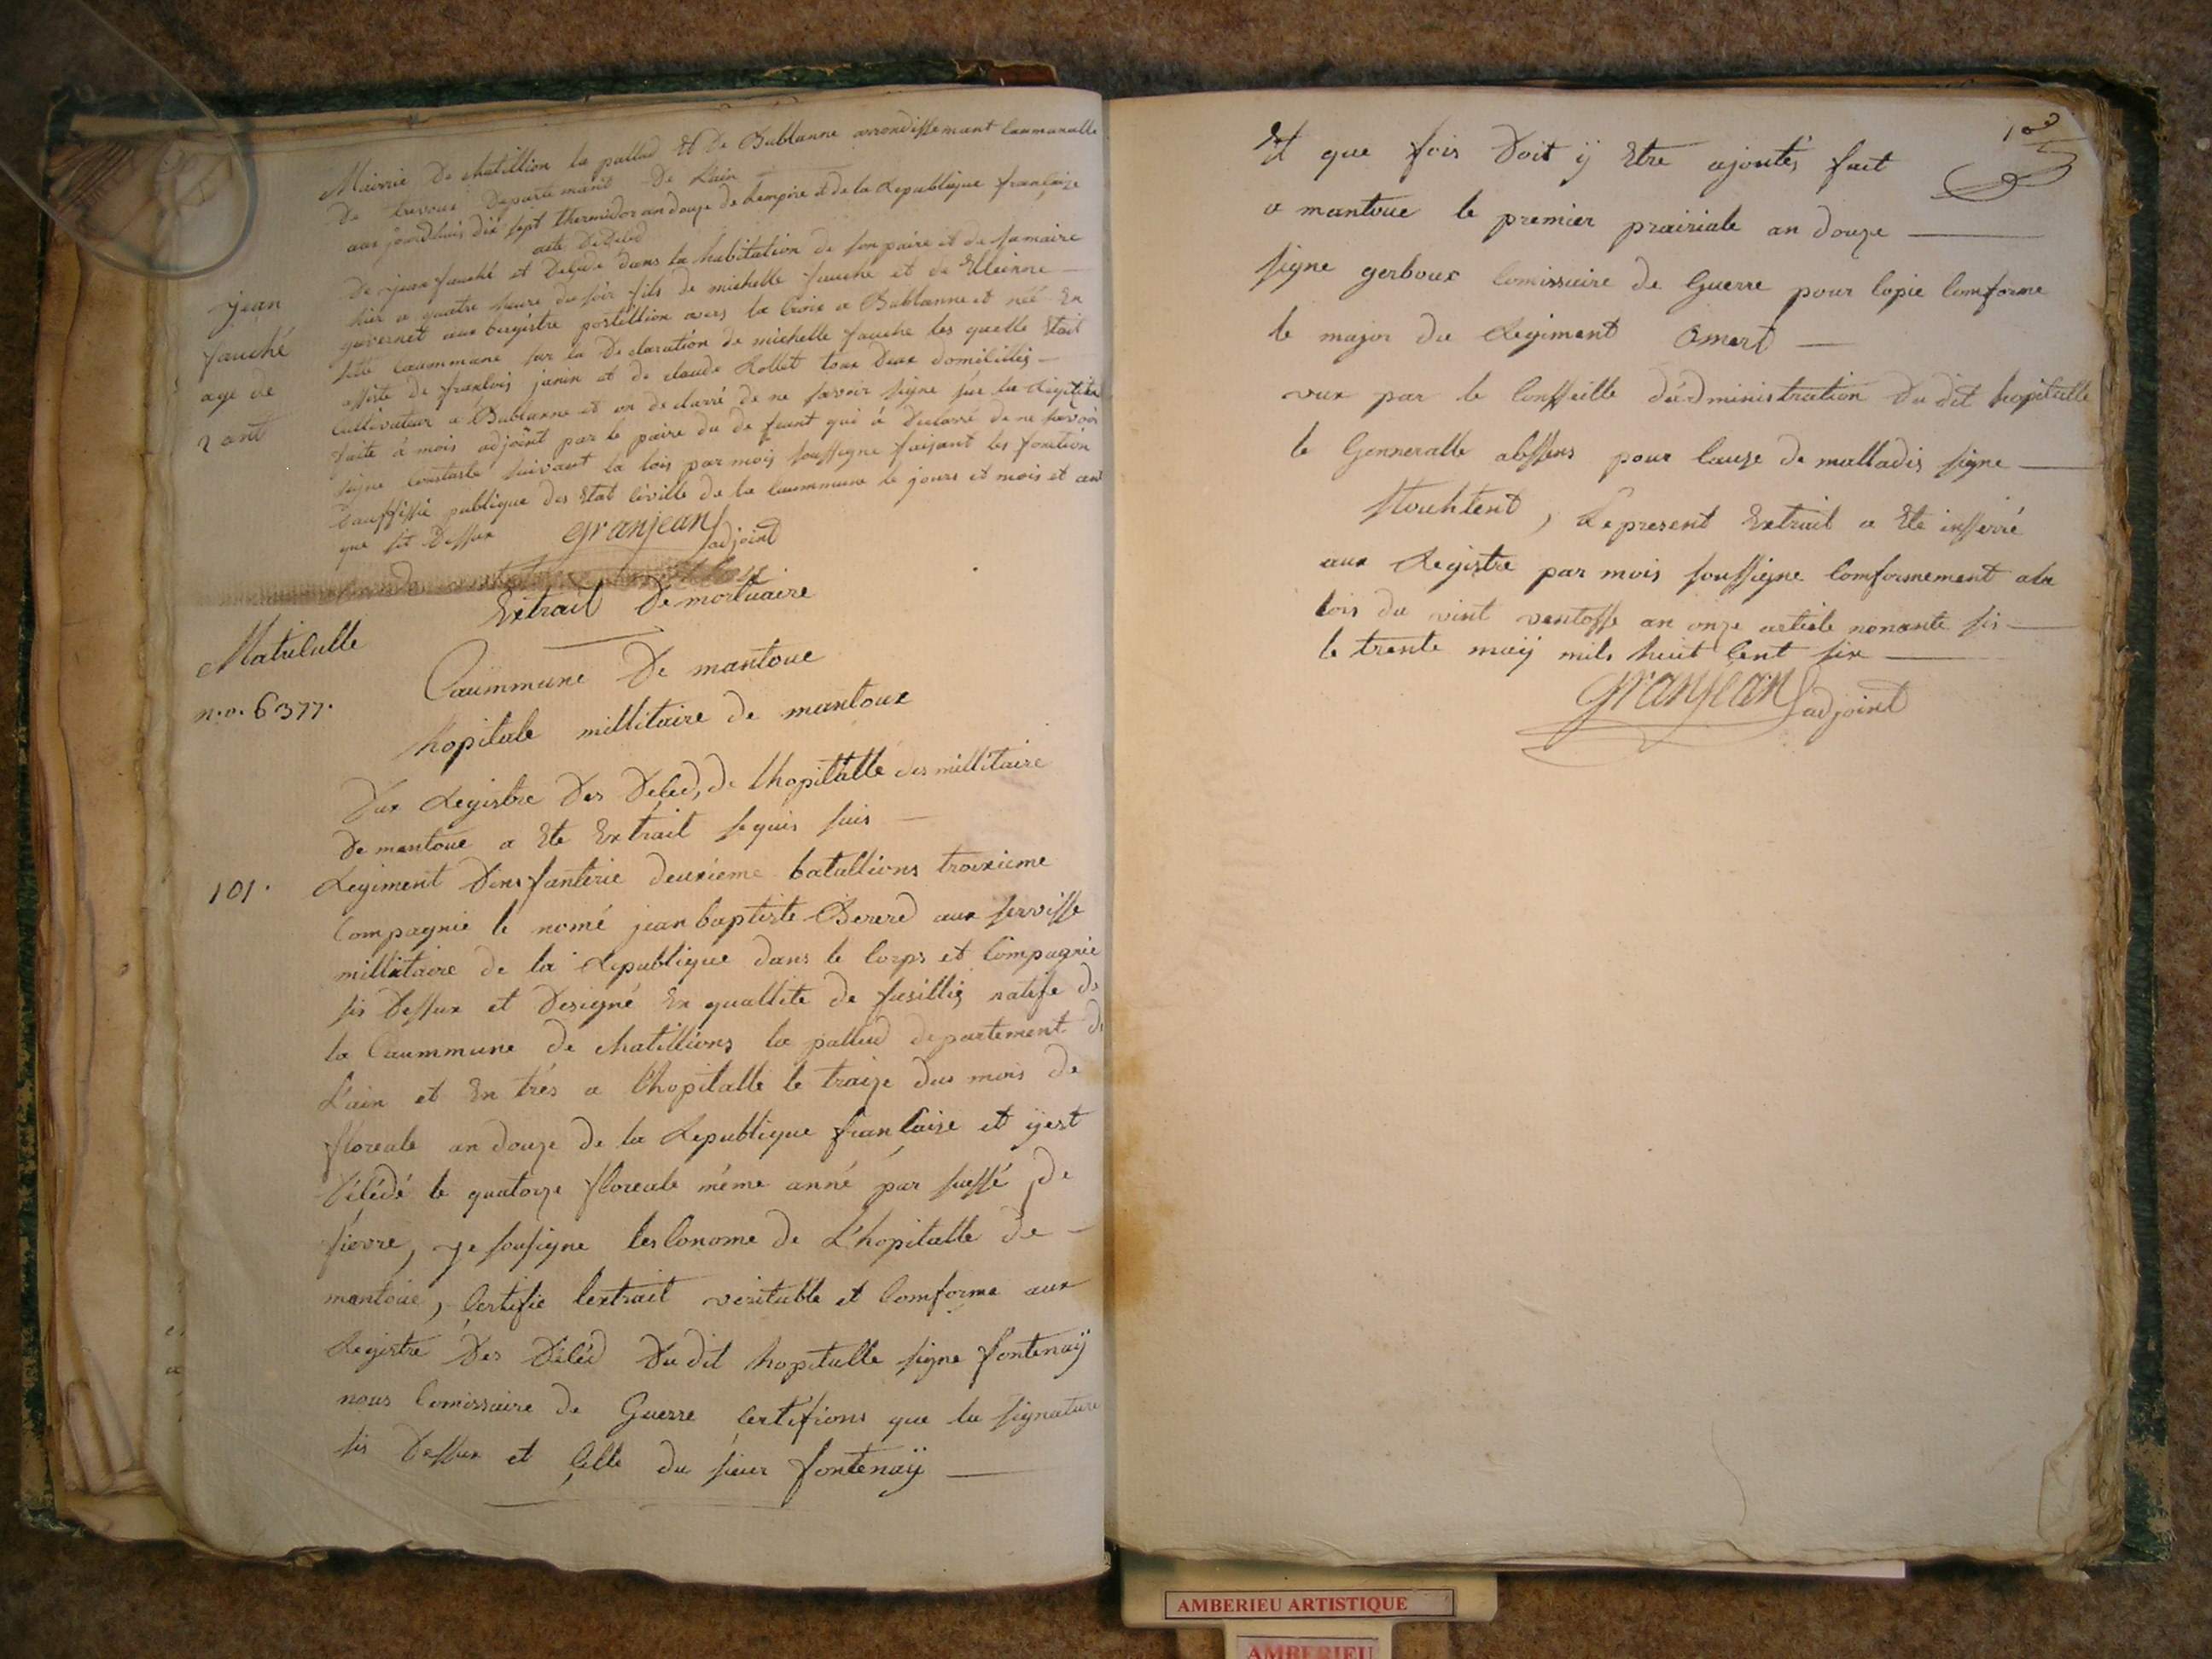 Mairrie De chatillion la pallud Et De Bublanne arrondissemant Caummunalle
De trevoux Departemant De Lain
aux jourdhuis dix sept thermidor an douze de Lempire et de la Republique françaize
acte De Deced
De jean fauché et Decede dans la habitation de son paire et de samaire
hier a quatre heure du soir fils de michelle fauché et de Etienne
guvernet aux bergistre postillion avers la Croix a Bublanne et néé En
sette Caummune sur la Declaration de michelle fauche les quelle Etait
assiste de franlois janin et de claude Rollet toux deux domicilliés
Cultivateur a Bublanne et on declarré de ne savoir signe sur la Requisition
faite á mois adjoint par le paire du defunt qui á Declarré de ne savoir
signe Constaste suivant la lois par mois soussigne faisant les fonction
dauffissié publique des Etat civille de la Caummune le jours et mois et ant
que sit Dessux granjean adjoint
jean
fauché
age de
2 ant
Extrait De mortuaire
Matriculle
n.o. 6377.
Caummune De mantoue
hopitale millitaire de mantoux
Dux Registre Des Deced, de Lhopitalle des millitaire
De mantoue a Ete Extrait sequis suis
101. Regiment Dinsfanterie deuxieme batallions troixieme
Compagnie le nomé jean baptiste Bererd aux servisse
millitaire de la Republique dans le Corps et Compagnie
sis Dessux et Designé En quallite de fusillié natife de
la Caummune de chatillions la pallud departement de
L'ain et Entrés a Lhopitalle le traize dus mois de
floreale an douze de la Republique françaize et yest
Décédé le quatorze floreale méme anné par suissé de
fievre, je sousigne lesConome de L'hopitalle de
mantoue, Certifie lextrait veritable et Comforme aux
Registre Des Décéd Dudit hopitalle signe fontenaÿ
nous Comissaire de Guerre Certifions que la signature
sis Dessux et Celle du sieur fontenaÿ
Et que fois Doit ÿ Etre ajoutés fait
a mantoue le premier prairiale an douze
signe gerboux Comissaire de Guerre pour Copie Comforme
le major du Regiment Omert
vux par le Consseille dádministration Dudit hopitalle
le Genneralle abssens pour Cauze de malladis signe
Stouhtent, Le present Extrait a Ete insserré
aux Registre par mois soussigne Comformement ala
lois du vint ventosse an onze article nonante sis
le trente maÿ mils huit Cent six
granjean adjoint
AMBERIEU ARTISTIQUE
AMBERIEU